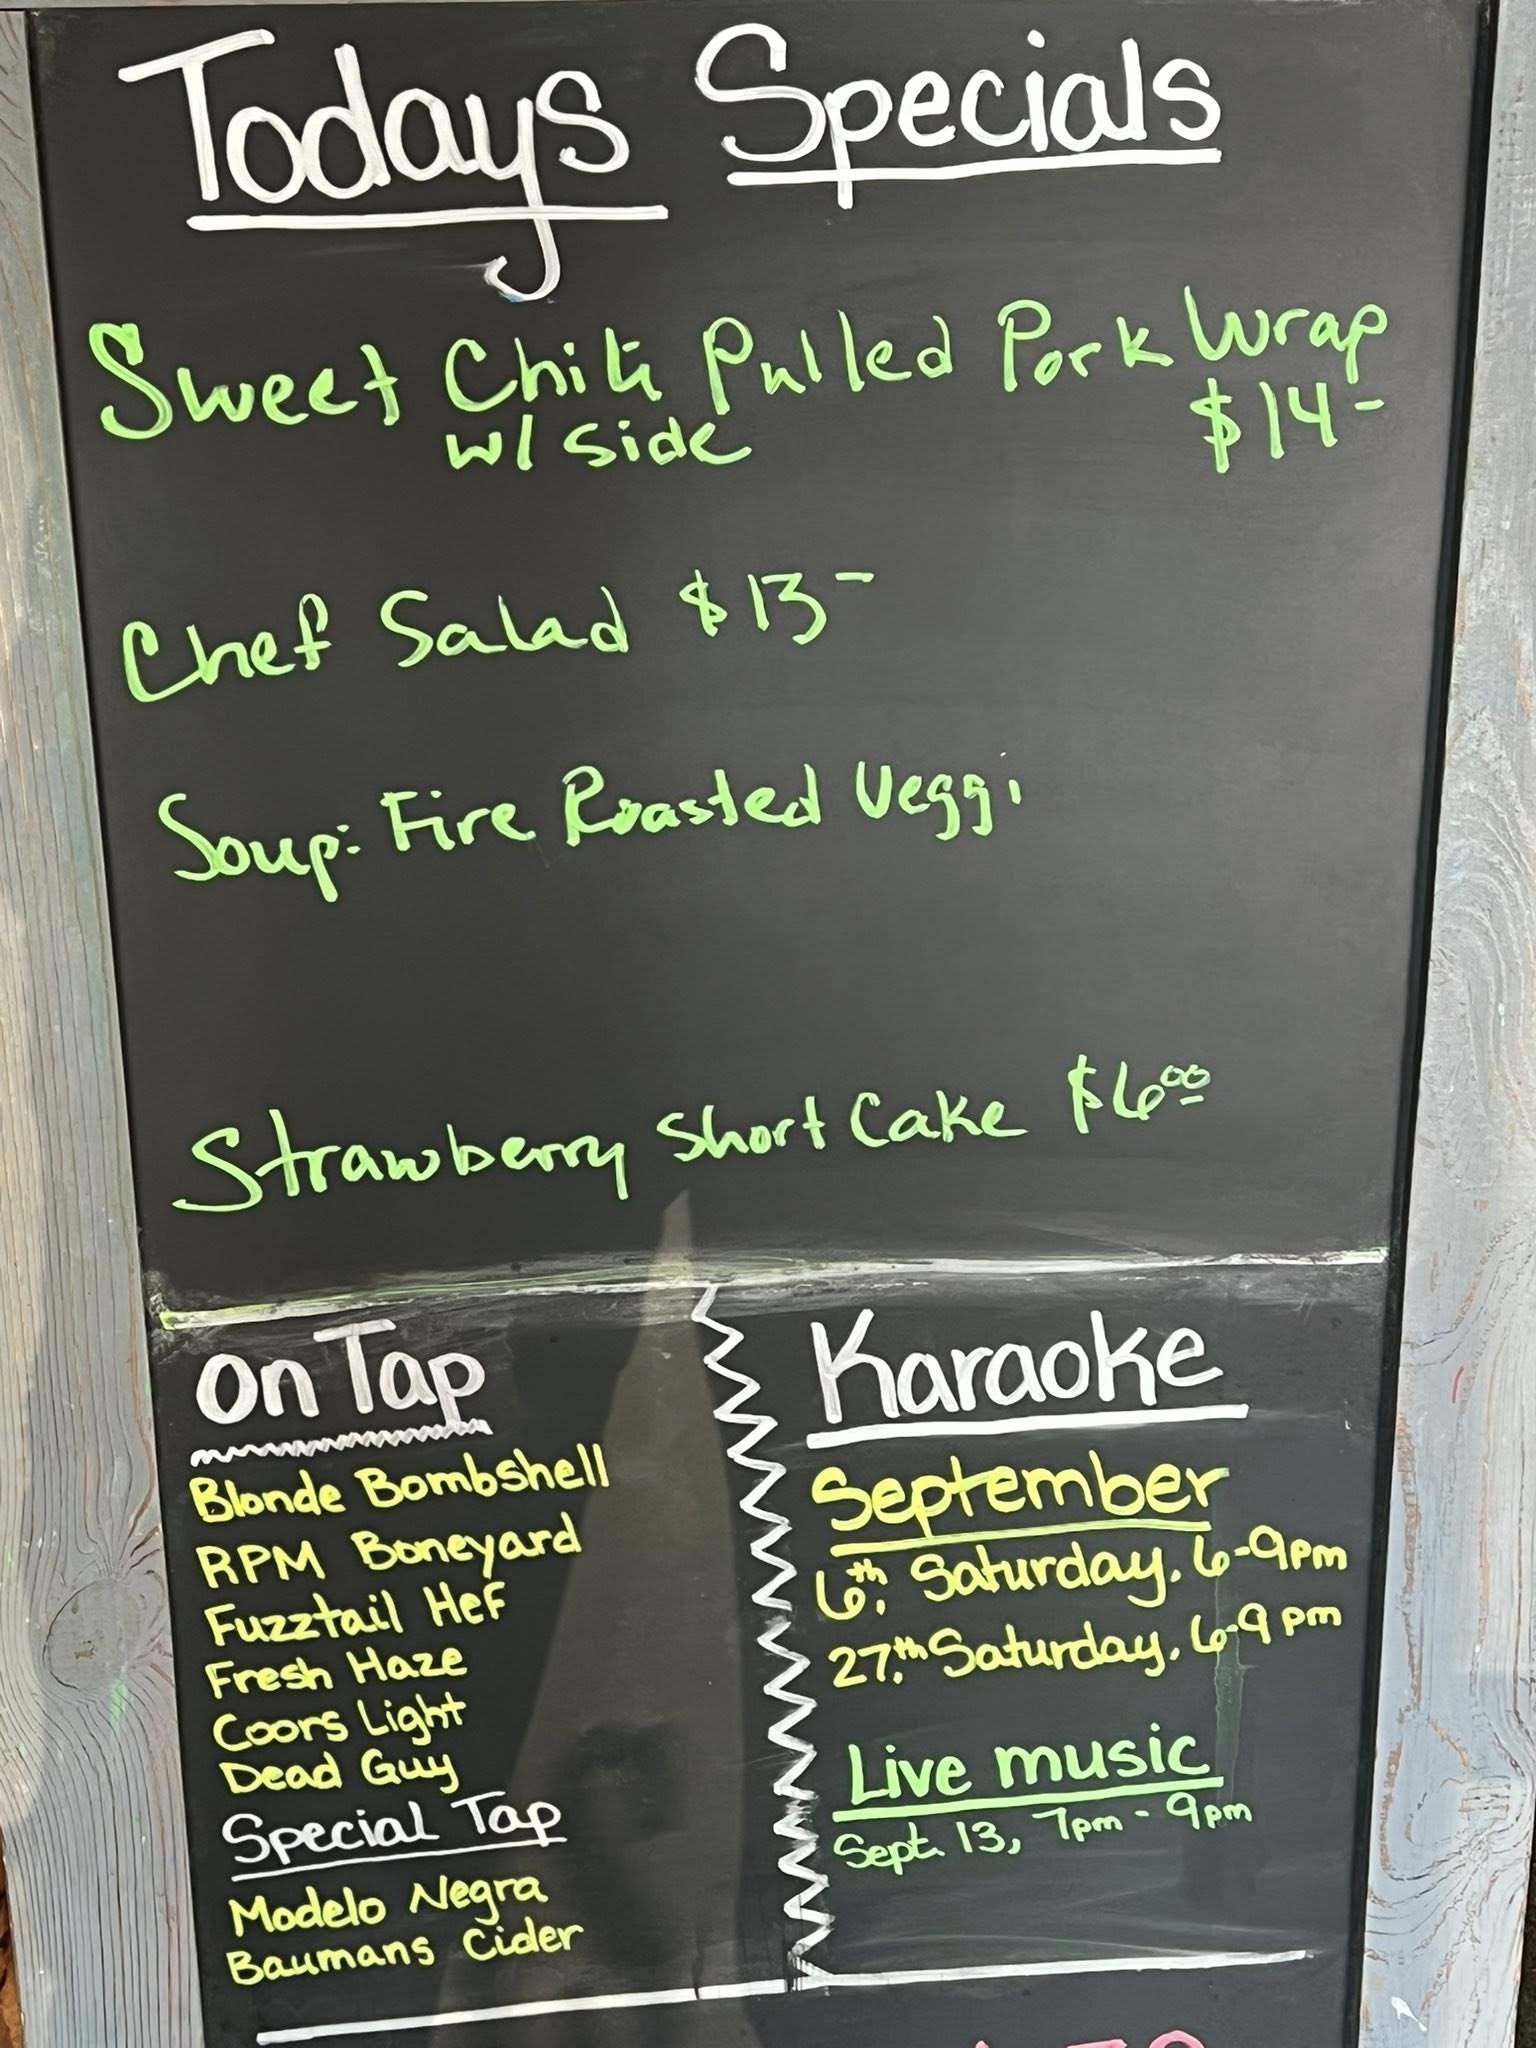 Todays Specials
Sweet Chili Pulled Pork Wrap
w/ side $14-
Chef Salad $13-
Soup: Fire Roasted Veggi
Strawberry Short Cake $6.00
on Tap
Blonde Bombshell
RPM Boneyard
Fuzztail Hef
Fresh Haze
Coors Light
Dead Guy
Special Tap
Modelo Negra
Baumans Cider
Karaoke
September
6th. Saturday. 6-9pm
27.th Saturday. 6-9pm
Live music
Sept. 13, 7pm - 9pm